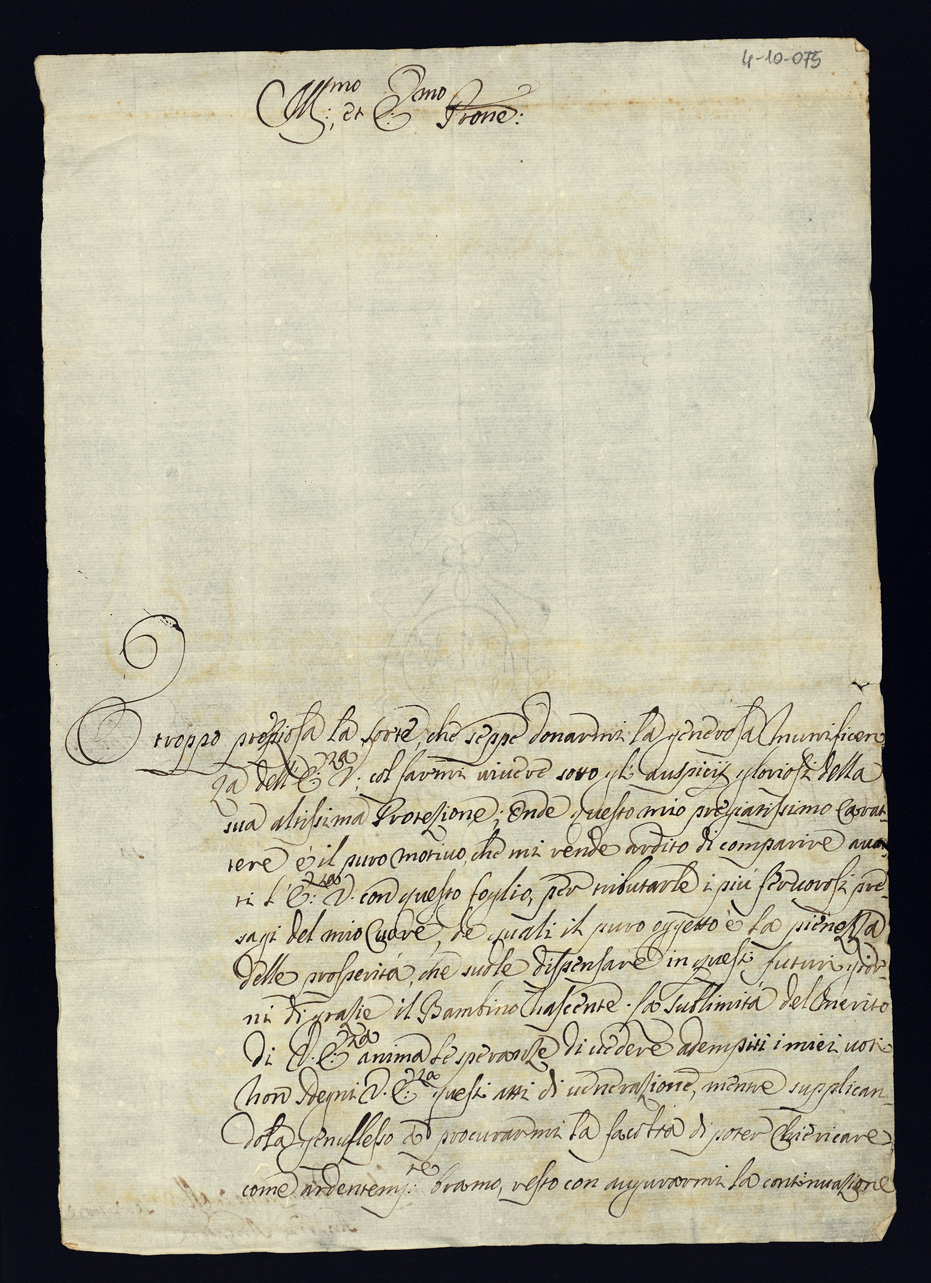 4-10-075
Ill:mo, et E:cmo Prone:
È troppo preziosa la sorte, che seppe donarmi la generosa Munificen
za dell'E:za V: col farmi uiuere sotto gl'auspicij gloriosi della
sua altissima Protezione; Onde questo mio pregiatissimo Carat-
tere è il puro Motiuo, che mi rende ardito di comparire auan
ti l'E:za V. con questo foglio, per tributarle i più feruorosi pre
sagi del mio Cuore, de quali il puro oggetto è la pienezza
delle prosperità, che suole dispensare in questi futuri gior
ni di grazie il Bambino Nascente. La Sublimità del Merito
di V. E:za anima le speranze di uedere adempiti i miei uoti
Non sdegni V. E:za questi atti di uenerazione, mentre supplican
dola genuflesso à procurarmi la facoltà di poter
come ardentem:te bramo, resto con augurarmi la continuazione